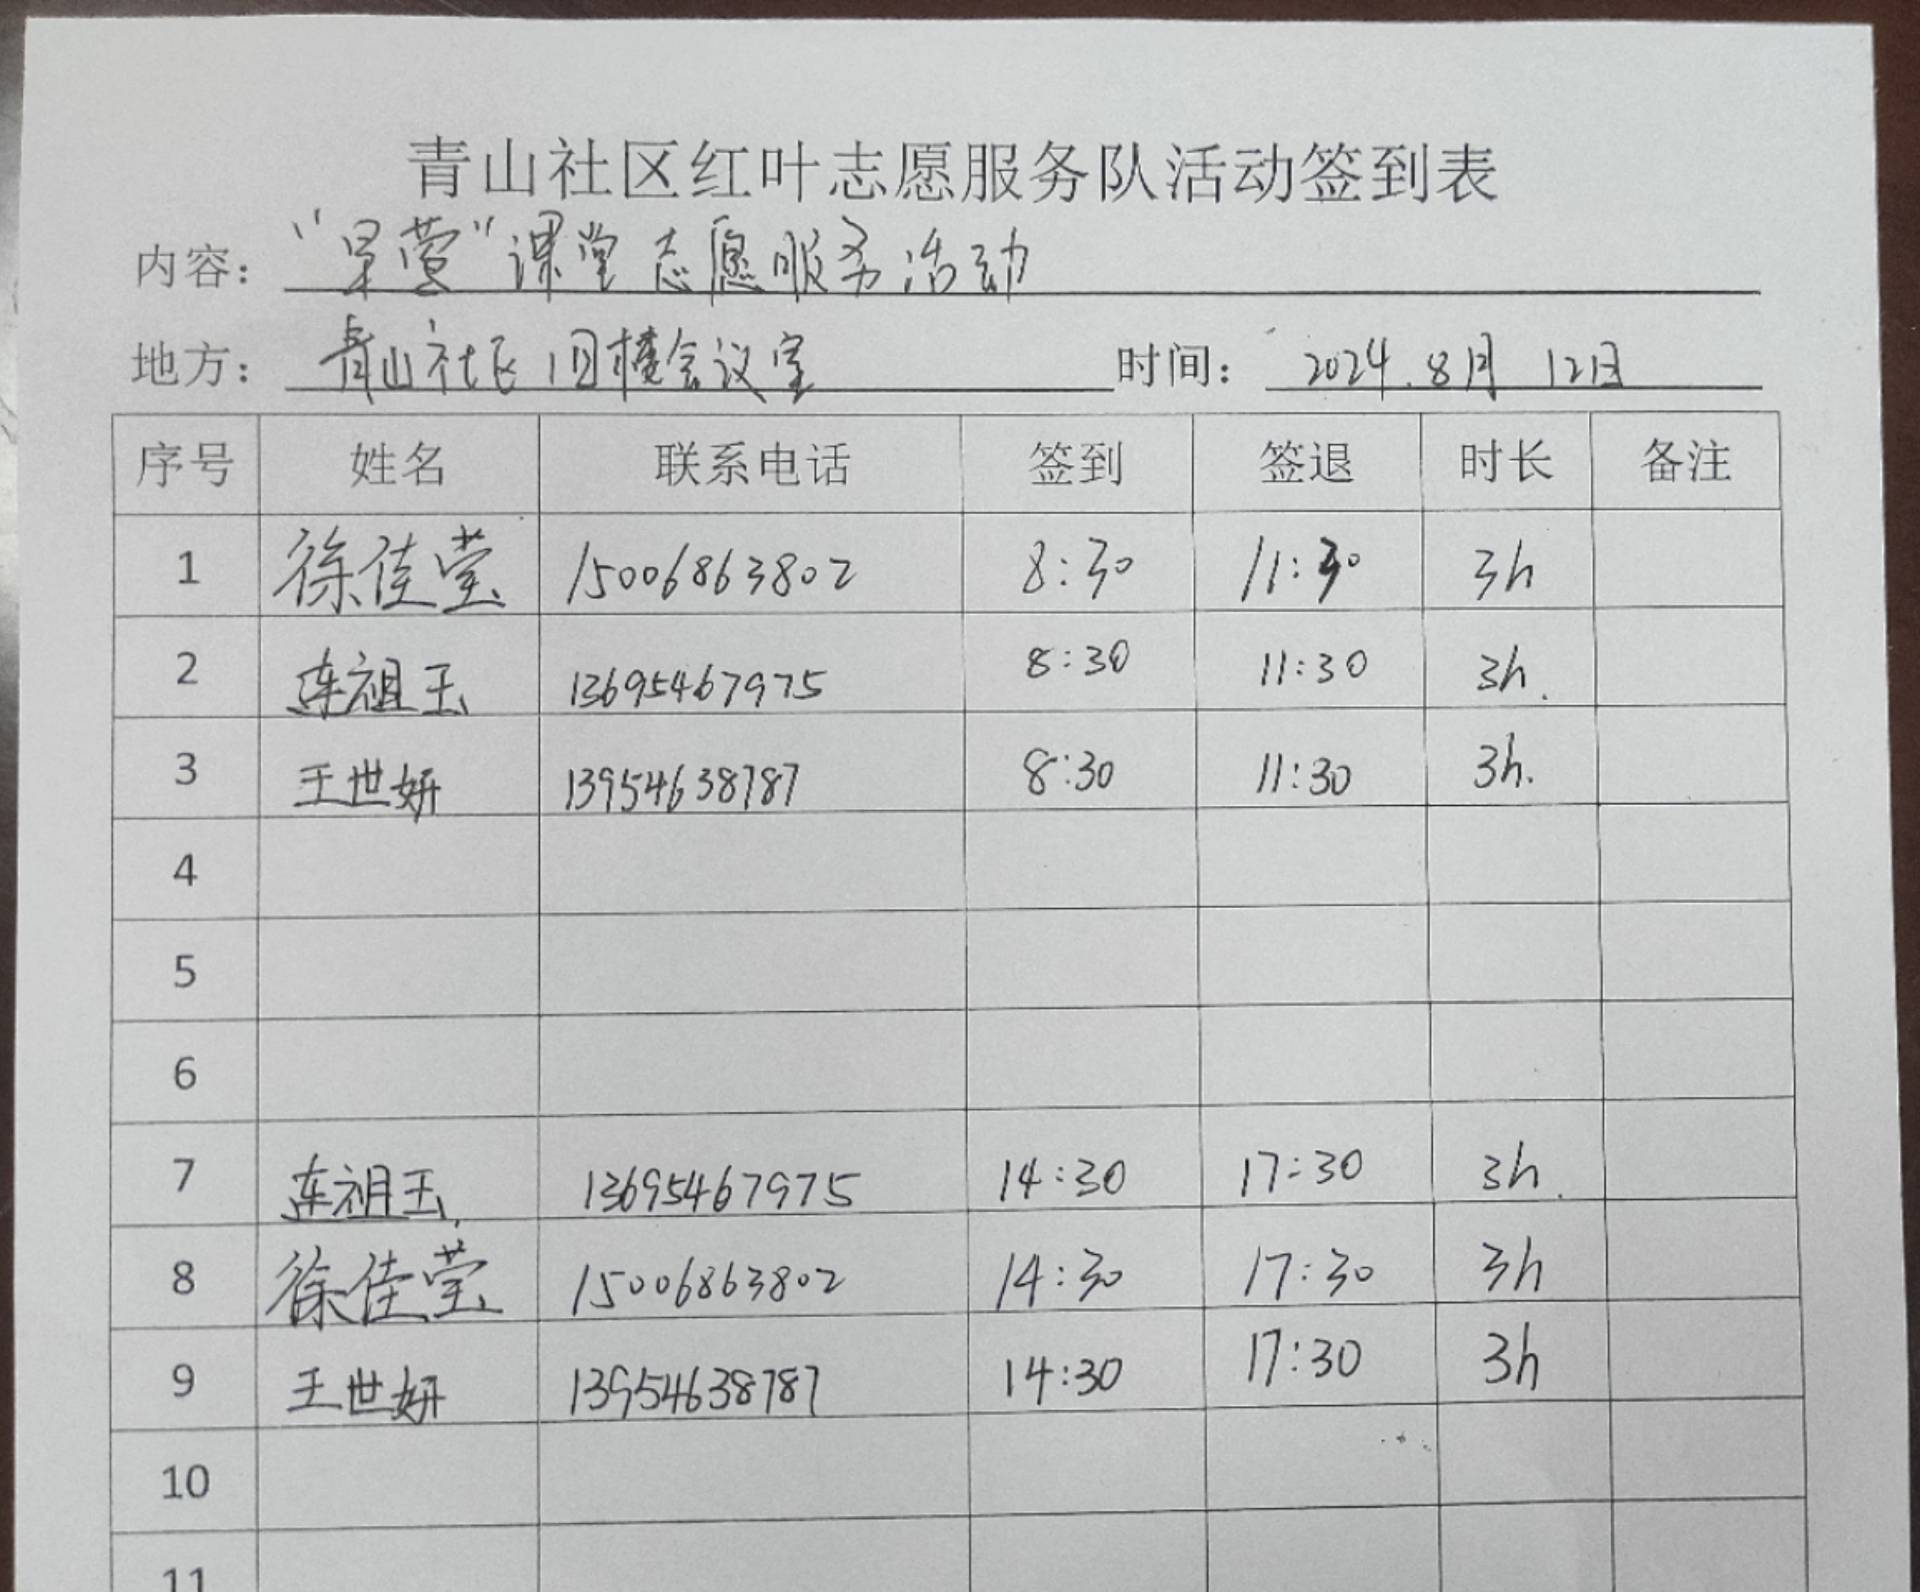 青山社区红叶志愿服务队活动签到表
内容： “ ”课堂志愿服务活动
地方： 青山社区旧楼会议室 时间： 2024.8月12日
序号 姓名 联系电话 签到 签退 时长 备注
1 徐佳莹 15006863802 8:30 11:30 3h
2 连祖玉 13695467975 8:30 11:30 3h.
3 王世妍 13954638787 8:30 11:30 3h.
4
5
6
7 连祖玉 13695467975 14:30 17:30 3h.
8 徐佳莹 15006863802 14:30 17:30 3h
9 王世妍 13954638787 14:30 17:30 3h
10
11